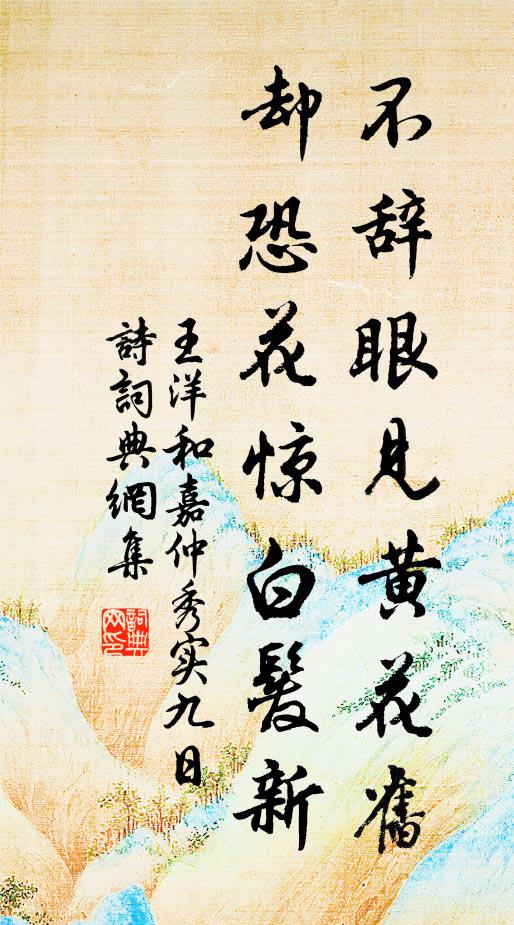 不辞眼见黄花舊
却恐花惊白髮新
王洋和嘉仲秀实九日
詩詞典網集
詞典